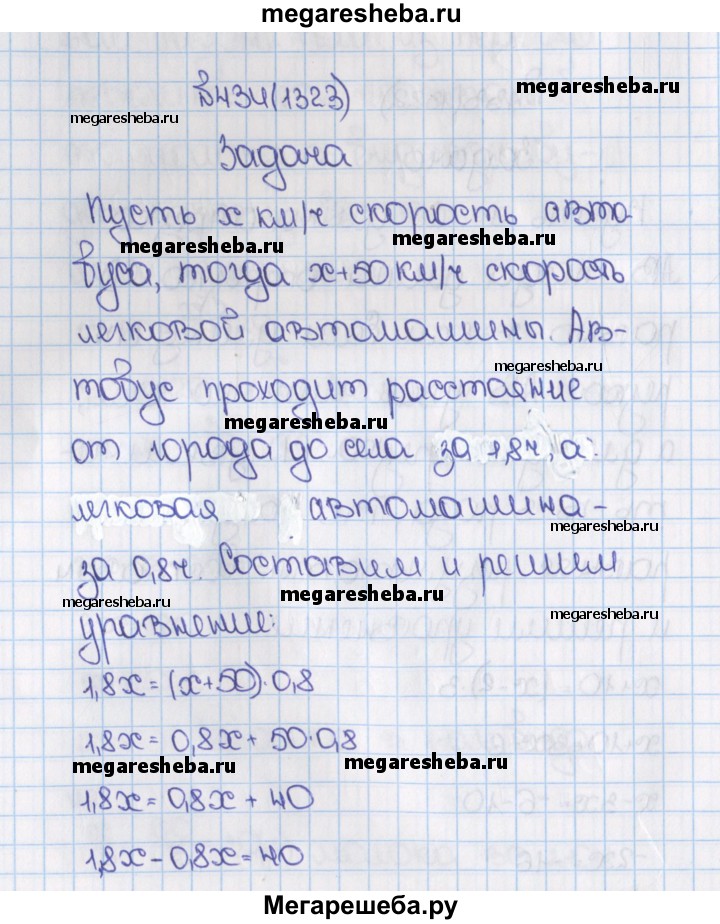 megaresheba.ru
№434(1323)
megaresheba.ru
megaresheba.ru
Задача
Пусть x км/ч скорость авто
megaresheba.ru
megaresheba.ru
буса, тогда x+50 км/ч скорость
легковой автомашины. Ав-
megaresheba.ru
тобус проходит расстояние
megaresheba.ru
от города до села за 1,8ч, а
megaresheba.ru
легковая автомашина -
megaresheba.ru
за 0,8ч. Составим и решим
megaresheba.ru
megaresheba.ru
megaresheba.ru
уравнение:
1,8x = (x+50)·0,8
1,8x = 0,8x + 50·0,8
megaresheba.ru
megaresheba.ru
1,8x = 0,8x + 40
1,8x - 0,8x = 40
Мегарешеба.ру